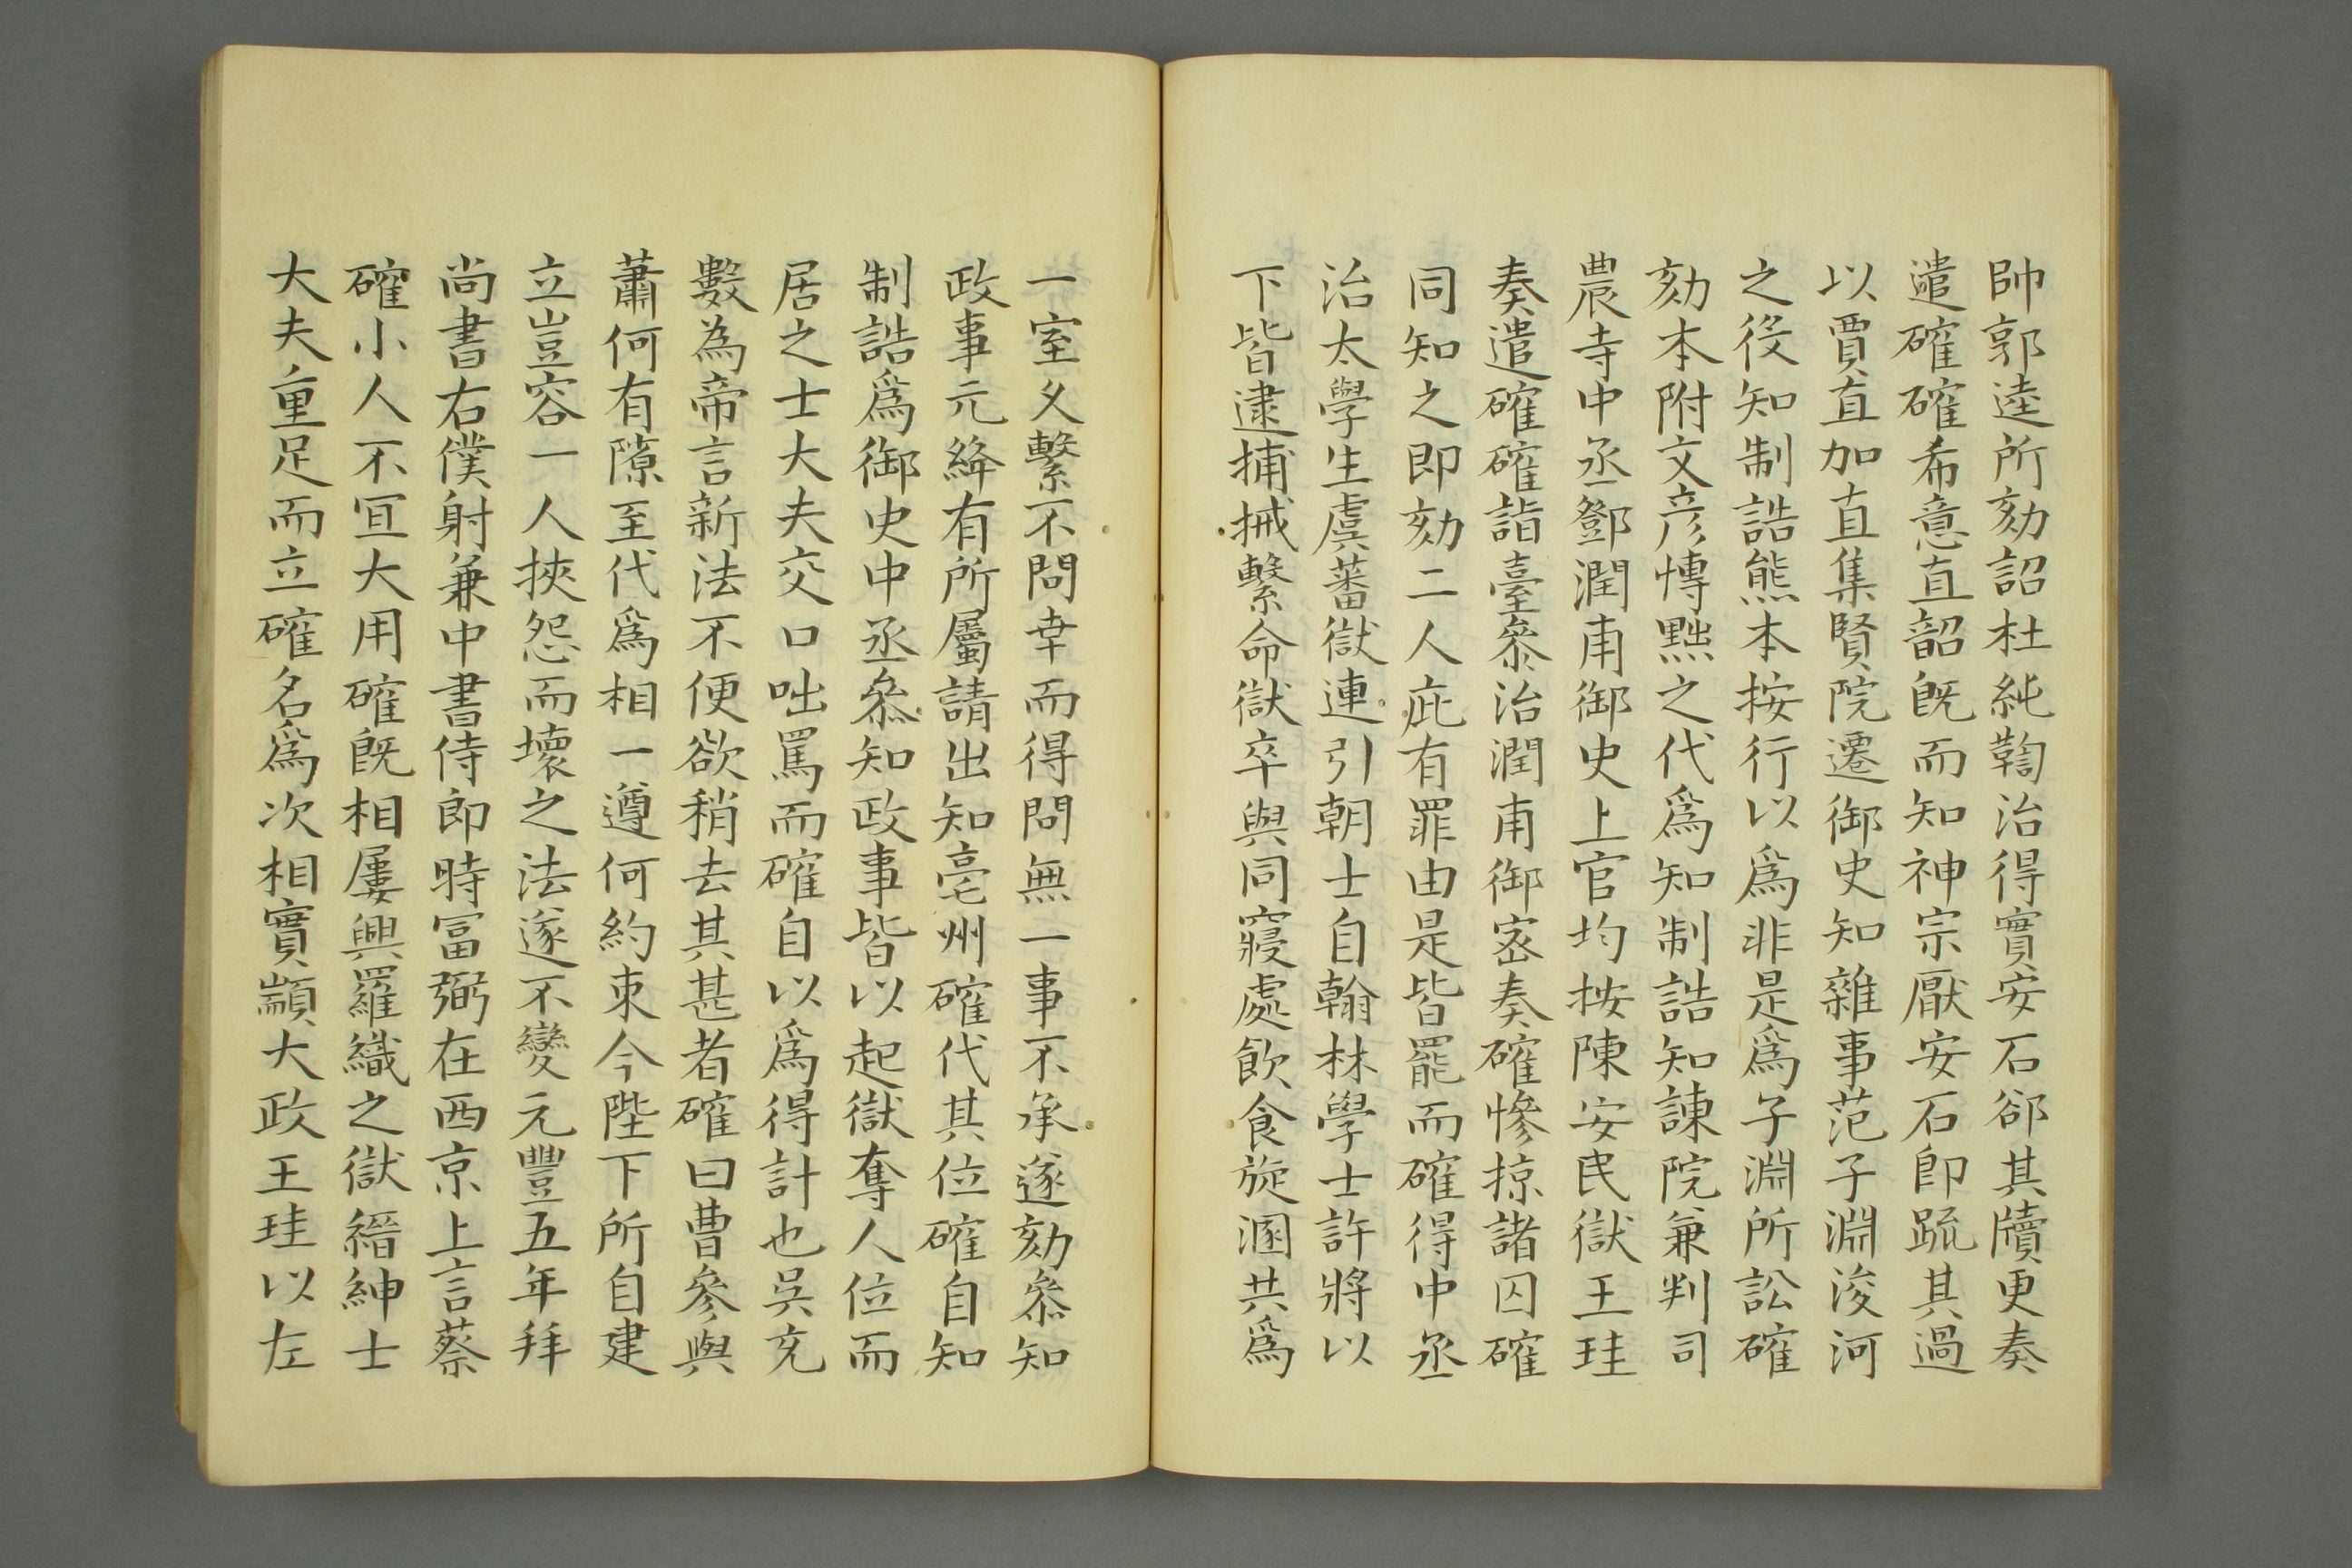 帥郭逵所劾詔杜純鞫治得實安石郤其牘更奏
遣確確希意直韶旣而知神宗厭安石卽䟽其過
以賈直加直集賢院遷御史知雜事范子淵浚河
之役知制誥熊本按行以爲非是爲子淵所訟確
劾本附文彦愽黜之代爲知制誥知諫院兼判司
農寺中丞鄧潤甫御史上官均按陳安民獄王珪
奏遣確確詣臺叅治潤甫御宻奏確慘掠諸囚確
同知之卽劾二人庇有罪由是皆罷而確得中丞
治太學生虞蕃獄連引朝士自翰林學士許將以
下皆逮捕械繫命獄卒與同寢處飲食旋溷共爲
一室久繫不問幸而得問無一事不承遂劾叅知
政事元絳有所屬請出知亳州確代其位確自知
制誥爲御史中丞叅知政事皆以起獄奪人位而
居之士大夫交口咄罵而確自以爲得計也吳充
數為帝言新法不便欲稍去其甚者確曰曹參與
蕭何有隙至代爲相一遵何約束今陛下所自建
立豈容一人挾怨而壞之法遂不變元豐五年拜
尚書右僕射兼中書侍郎時冨弼在西京上言蔡
確小人不冝大用確旣相屢興羅織之獄縉紳士
大夫重足而立確名爲次相實顓大政王珪以左